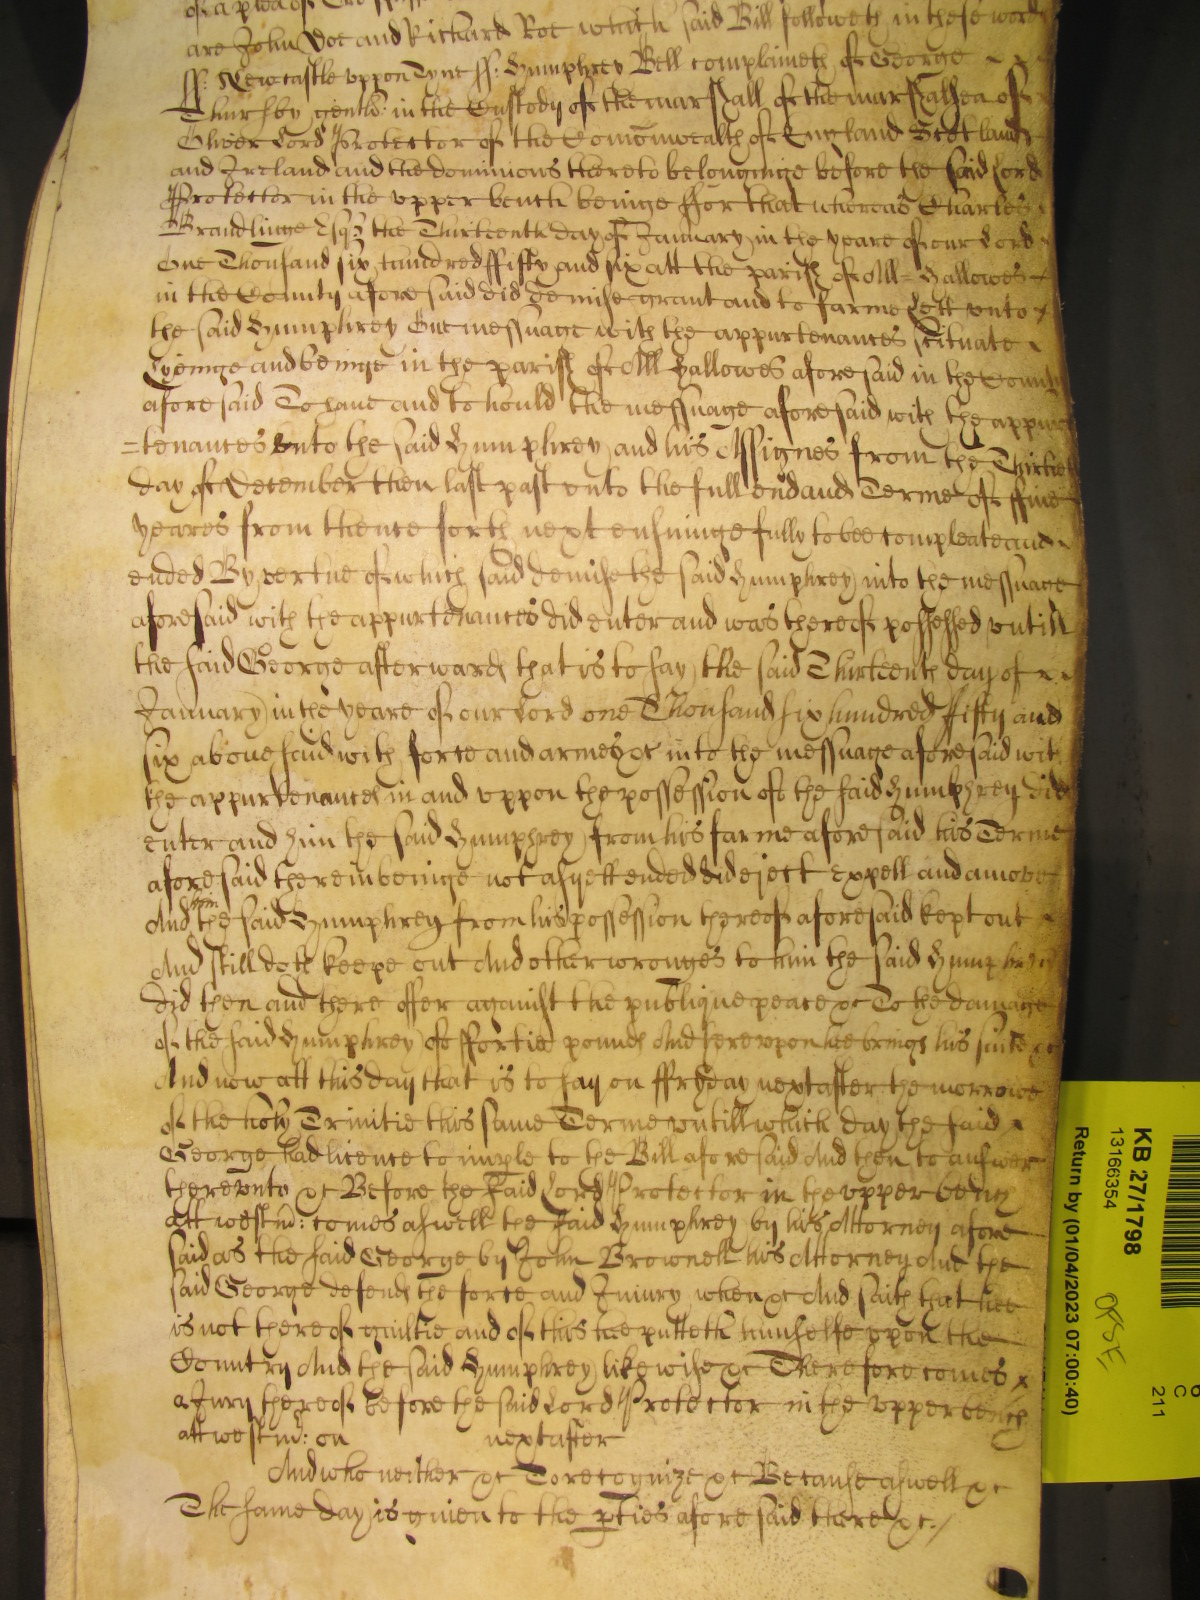 of a plea of
are John Doe and Richard Roe which said Bill followeth in these words
ss: Newcastle vppon Tyne ss: Humphrey Bell complaineth of George
Thursby gentl: in the Custody of the marshall of the marshalsea of
Oliver Lord Protector of the Comonwealth of England Scotland
and Ireland and the dominions thereto belonginge before the said Lord
Protector in the vpper bench beinge ffor that whereas Charles
Brandlinge Esqr the Thirteenth day of January in the yeare of our Lord
One Thousand six hundred ffifty and six att the parish of All=Hallowes
in the County aforesaid did demise grant and to farme Lett vnto
the said Humphrey One messuage with the appurtenances scituate
Lyeinge and beinge in the parish of All Hallowes aforesaid in the County
aforesaid To haue and to hould the messuage aforesaid with the appur
=tenances vnto the said Humphrey and his Assignes from the Thirtieth
day of December then last past vnto the full end and Terme of ffiue
yeares from thence forth next ensuinge fully to bee compleate and
ended By vertue of which said demise the said Humphrey into the messuage
aforesaid with the appurtenances did enter and was thereof possessed vntill
the said George afterwards that is to say the said Thirteenth day of
January in the yeare of our Lord one Thousand six hundred ffifty and
six abouesaid with force and armes &c into the messuage aforesaid with
the appurtenances in and vppon the possession of the said Humphrey did
enter and him the said Humphrey from his farme aforesaid his Terme
aforesaid therein beinge not as yett ended did eject Expell and amove
And him the said Humphrey from his possession thereof aforesaid kept out
And still doth keepe out And other wronges to him the said Humphrey
did then and there offer against the publique peace &c To the damage
of the said Humphrey of ffortie pounds And herevpon hee brings his suite &c
And now att this day that is to say on ffryday next after the morrowe
of the holy Trinitie this same Terme vntill which day the said
George had licence to imple to the Bill aforesaid And then to answer
therevnto &c Before the said Lord Protector in the vpper bench
att westm: comes aswell the said Humphrey by his Attorney afore
said as the said George by John Brownell his Attorney And the
said George defends the force and Iniury when &c And saith that hee
is not thereof guiltie and of this hee putteth himselfe vpon the
Country And the said Humphrey likewise &c Therefore comes
a Jury thereof before the said Lord Protector in the vpper bench
att westm: on next after
And who neither &c To recognize &c Because aswell &c
The same day is giuen to the pties aforesaid there &c./
KB 27/1798
13166354
Return by (01/04/2023 07:00:40)
C
211